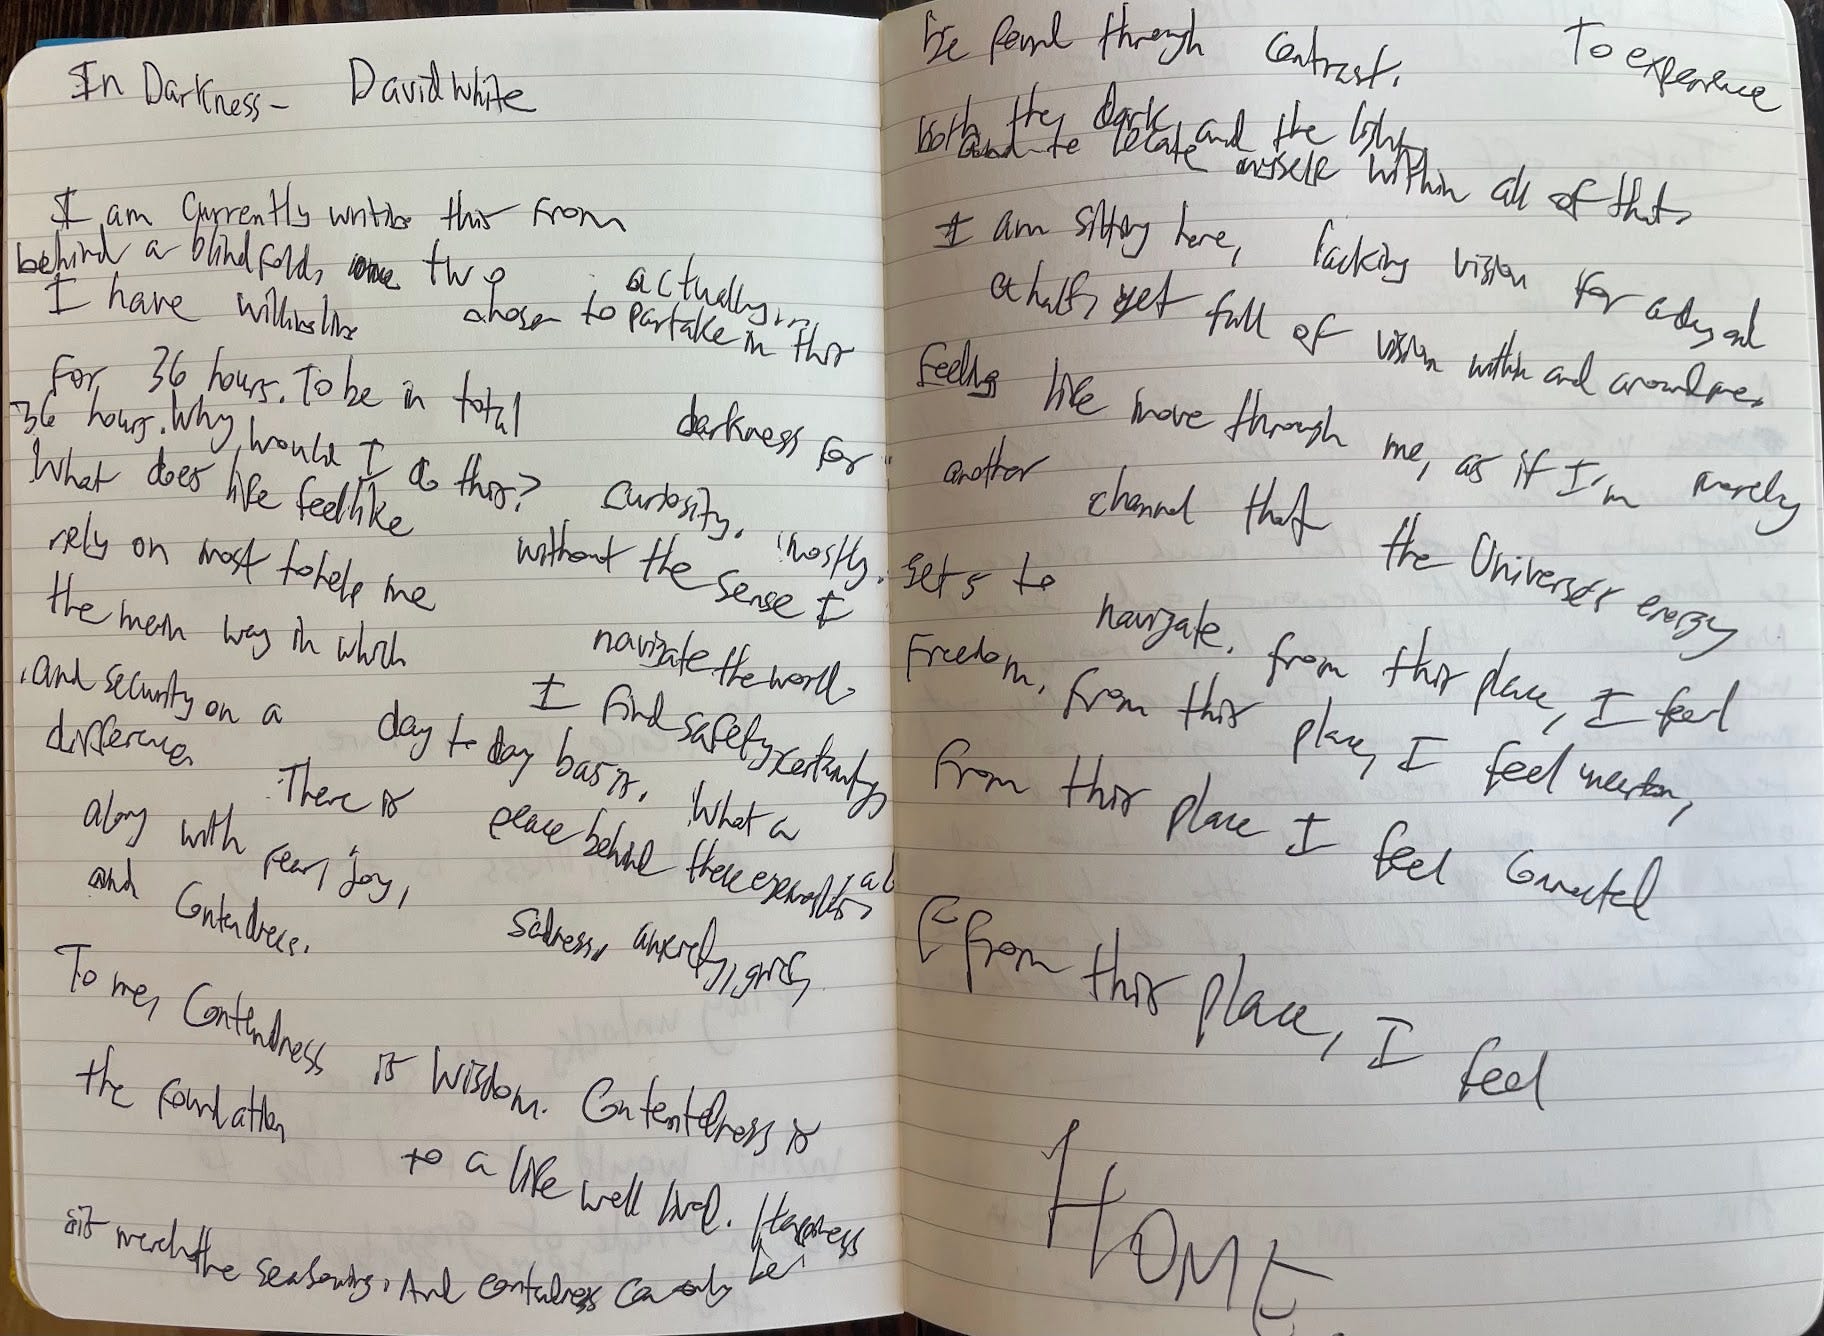 In Darkness - David White
I am currently writing this from
behind a blindfold, two actually...
I have willingly chosen to partake in this
for 36 hours. To be in total darkness for
36 hours. Why would I do this? Curiosity, mostly.
What does life feel like without the sense I
rely on most to help me navigate the world,
the main way in which I find safety, certainty
and security on a day to day basis. What a
difference. There is peace behind these
along with fear, joy, sadness, anxiety, grief,
and Contendness.
To me, Contendness is wisdom. Contentedness is
the foundation to a life well lived. Happiness
is merely the seasoning. And contendness can only be
be found through contrast. To experience
both the dark and the light
and to locate myself within all of that.
I am sitting here, lacking vision for a day and
a half, yet full of vision within and around me.
Feeling life move through me, as if I'm merely
another channel that the Universes energy
gets to navigate. From this place, I feel
Freedom, from this place, I feel
From this place I feel Connected
From this place, I feel
HOME